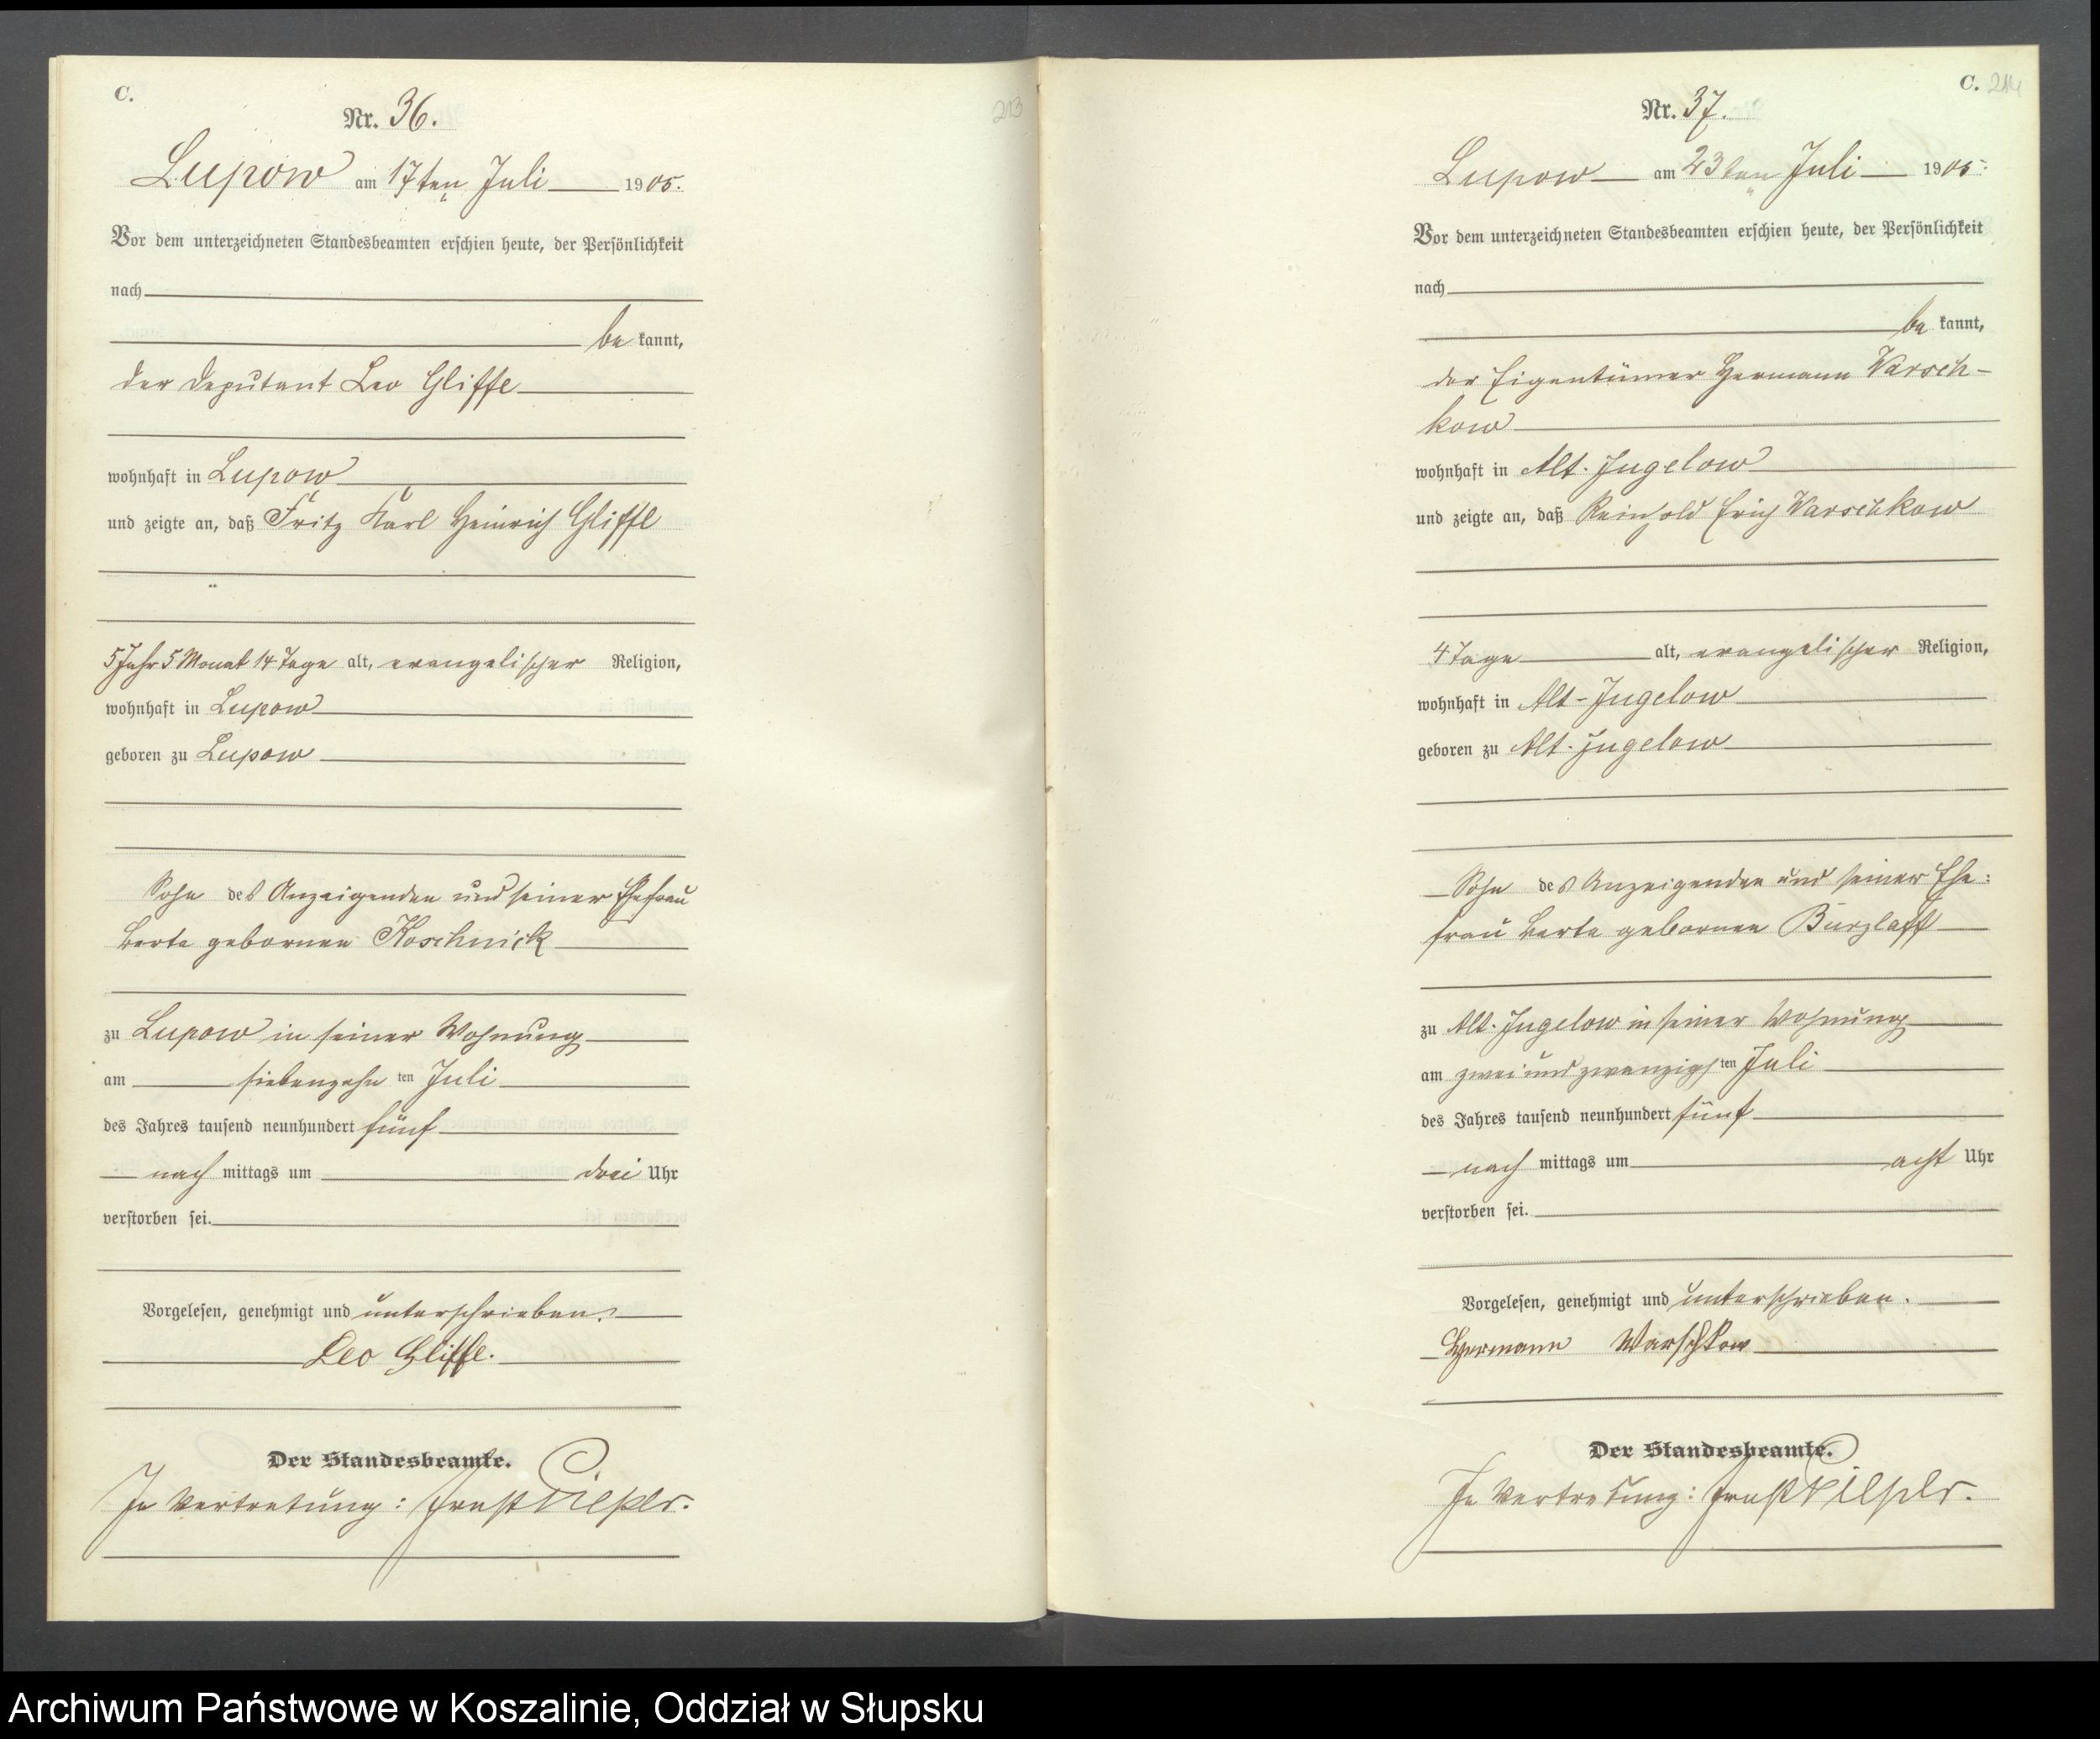 C.
213
Nr. 36.
Lupow am 17ten Juli 1905.
Vor dem unterzeichneten Standesbeamten erschien heute, der Persönlichkeit
nach
be kannt,
der Deputant Leo Gliffe
wohnhaft in Lupow
und zeigte an, daß Fritz Karl Heinrich Gliffe
5 Jahr 5 Monat 14 Tage alt, evangelischer Religion,
wohnhaft in Lupow
geboren zu Lupow
Sohn des Anzeigenden und seiner Ehefrau
Berta gebornen Koschnick
zu Lupow in seiner Wohnung
am siebenzehn ten Juli
des Jahres tausend neunhundert fünf
nach mittags um drei Uhr
verstorben sei.
Vorgelesen, genehmigt und unterschrieben.
Leo Gliffe.
Der Standesbeamte.
In Vertretung: Ernst
C. 214
Nr. 37.
Lupow am 23ten Juli 1905.
Vor dem unterzeichneten Standesbeamten erschien heute, der Persönlichkeit
nach
be kannt,
der Eigentümer Hermann Warsch-
kow
wohnhaft in Alt-Jugelow
und zeigte an, daß Reinhold Erich Warschkow
4 Tage alt, evangelischer Religion,
wohnhaft in Alt-Jugelow
geboren zu Alt-Jugelow
Sohn des Anzeigenden und seiner Ehe-
frau Berta gebornen Burzlaff
zu Alt-Jugelow in seiner Wohnung
am zwei und zwanzigs ten Juli
des Jahres tausend neunhundert fünf
nach mittags um acht Uhr
verstorben sei.
Vorgelesen, genehmigt und unterschrieben.
Hermann Warschkow
Der Standesbeamte.
In Vertretung: Ernst
Archiwum Państwowe w Koszalinie, Oddział w Słupsku